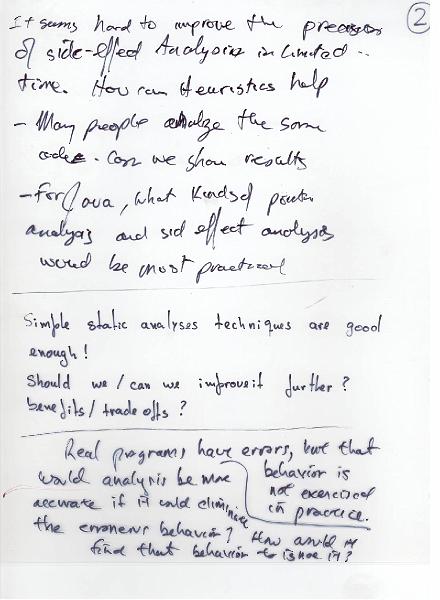 ②
It seems hard to improve the precision
of side-effect Analysis in limited ..
time. How can Heuristics help
- Many people analyze the same
code. Can we share results
- For Java, what kinds of pointer
analysis and sid effect analyses
would be most practical
Simple static analyses techniques are good
enough!
Should we / can we improve it further?
benefits / trade offs?
Real programs have errors, but that
behavior is
not exercised
in practice.
would analysis be more
accurate if it could eliminate
the erroneous behavior? How could it
find that behavior to ignore it?